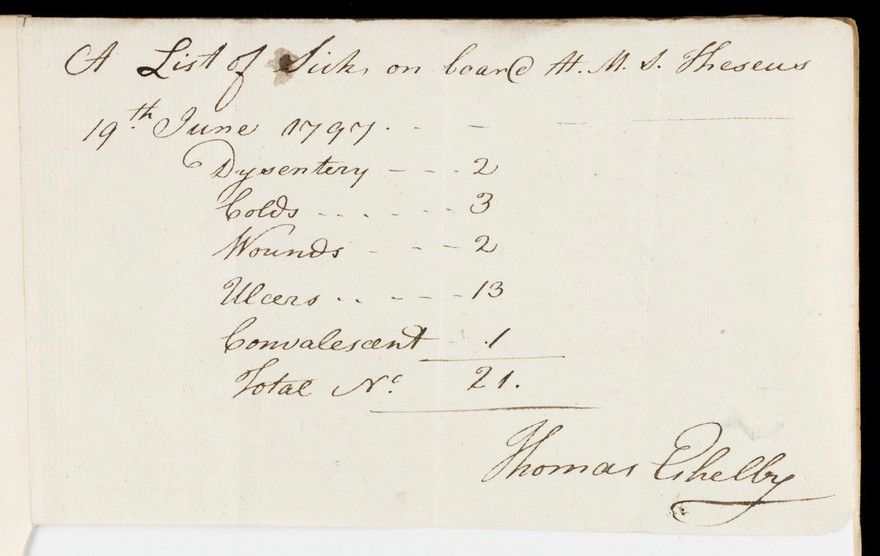 A List of Sick, on board H. M. S. Theseus
19th June 1797. - - -
Dysentery - - - 2
Colds - - - - - - 3
Wounds - - - 2
Ulcers - - - - - 13
Convalescent - 1
Total No. 21.
Thomas Eshelby